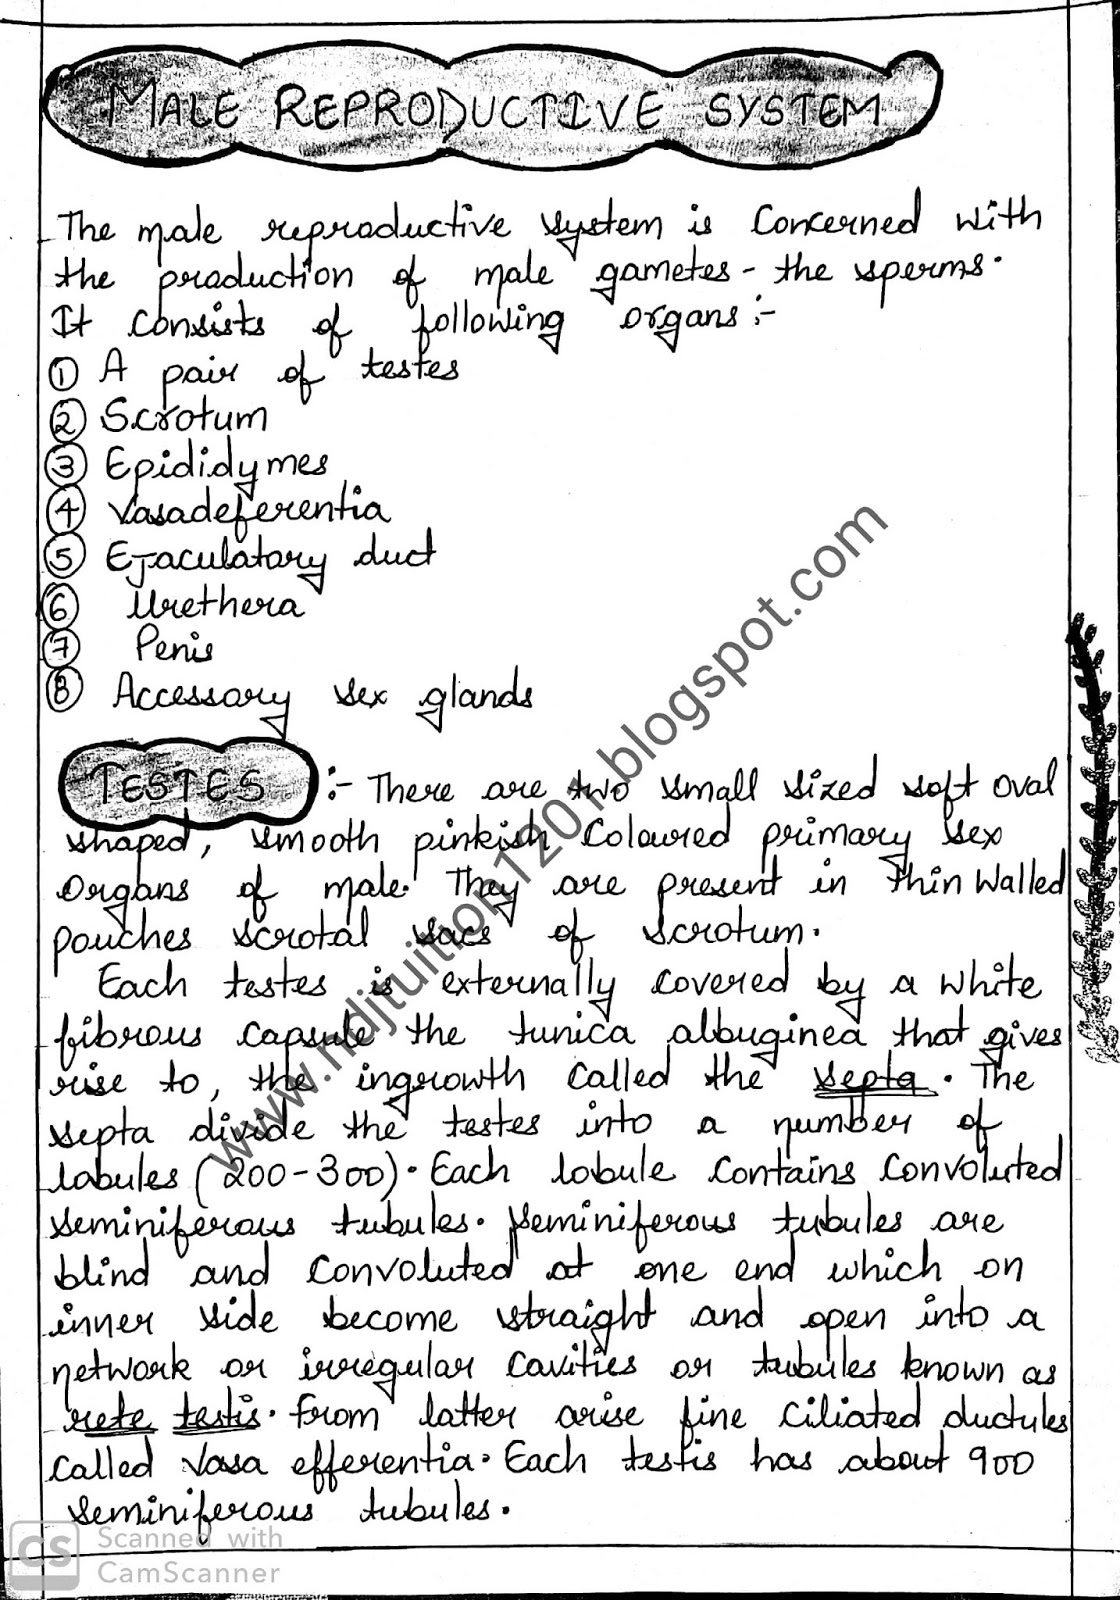 MALE REPRODUCTIVE SYSTEM
The male reproductive system is concerned with
the production of male gametes - the sperms.
It consists of following organs :-
① A pair of testes
② Scrotum
③ Epididymes
④ Vasadeferentia
⑤ Ejaculatory duct
⑥ Urethera
⑦ Penis
⑧ Accessory sex glands
TESTES :- There are two small sized soft oval
shaped, smooth pinkish coloured primary sex
organs of male. They are present in thin walled
pouches scrotal sacs of scrotum.
Each testes is externally covered by a white
fibrous capsule the tunica albuginea that gives
rise to, the ingrowth called the septa. The
septa divide the testes into a number of
labules (200-300). Each lobule contains convoluted
seminiferous tubules. Seminiferous tubules are
blind and convoluted at one end which on
inner side become straight and open into a
network or irregular cavities or tubules known as
rete testis. From latter arise fine ciliated ductules
called vasa efferentia. Each testis has about 900
seminiferous tubules.
www.ndjtuition1201.blogspot.com
CS Scanned with
CamScanner